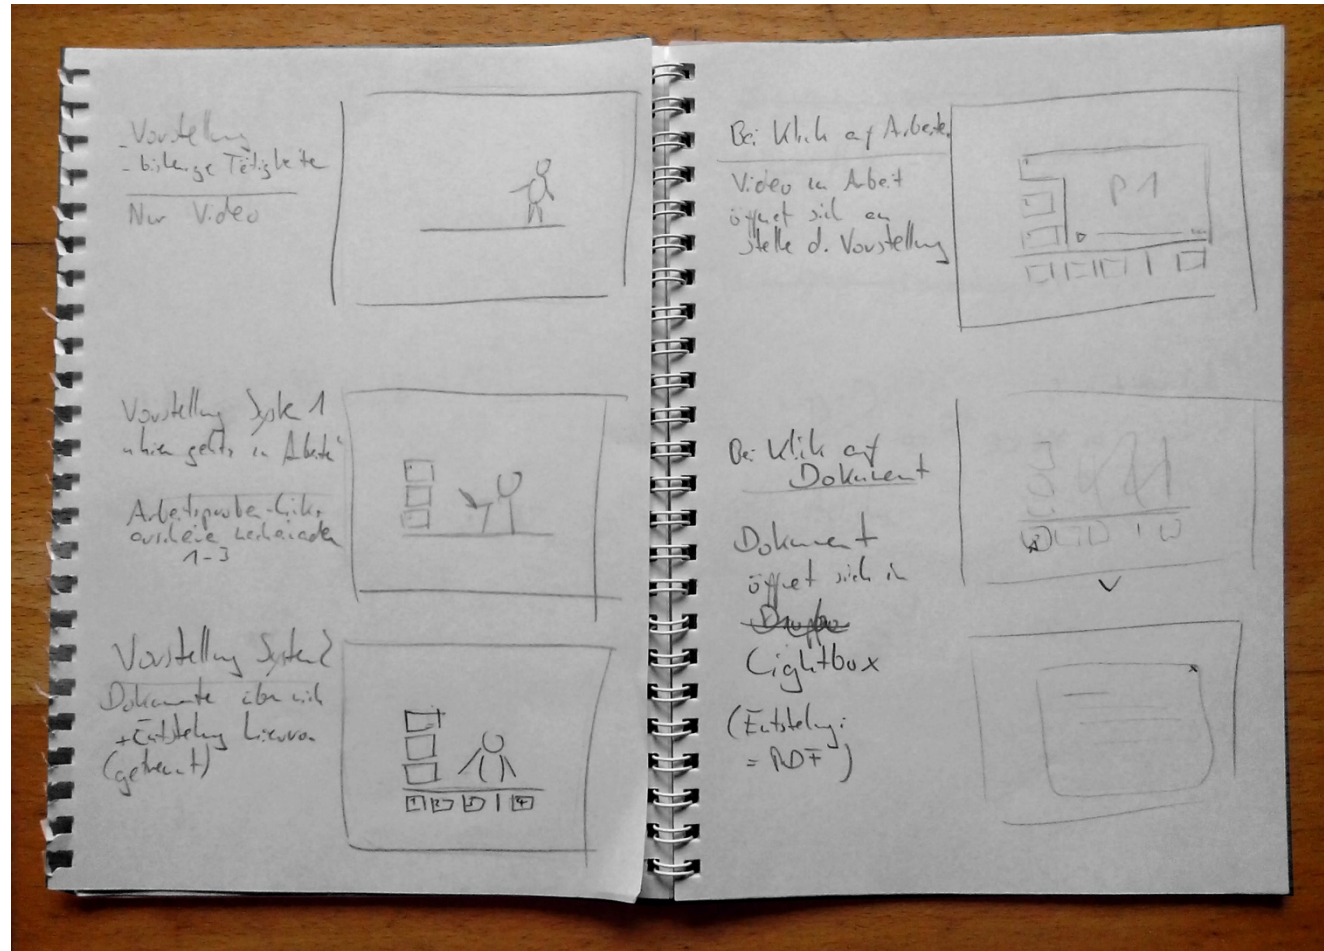 - Vorstellung
- bisherige Tätigkeiten
Nur Video
Vorstellung System 1
"hier gehts zu Arbeiten"
Arbeitsproben-Links
nacheinander
1-3
Vorstellung System 2
Dokumente über mich
+ Entstehung
(getrennt)
1 2 3 4
Bei Klick auf Arbeiten
Video zu Arbeit
öffnet sich an
stelle d. Vorstellung
P1
Bei Klick auf
Dokument
Dokument
öffnet sich in
Lightbox
(Entstehung:
= PDF)
x